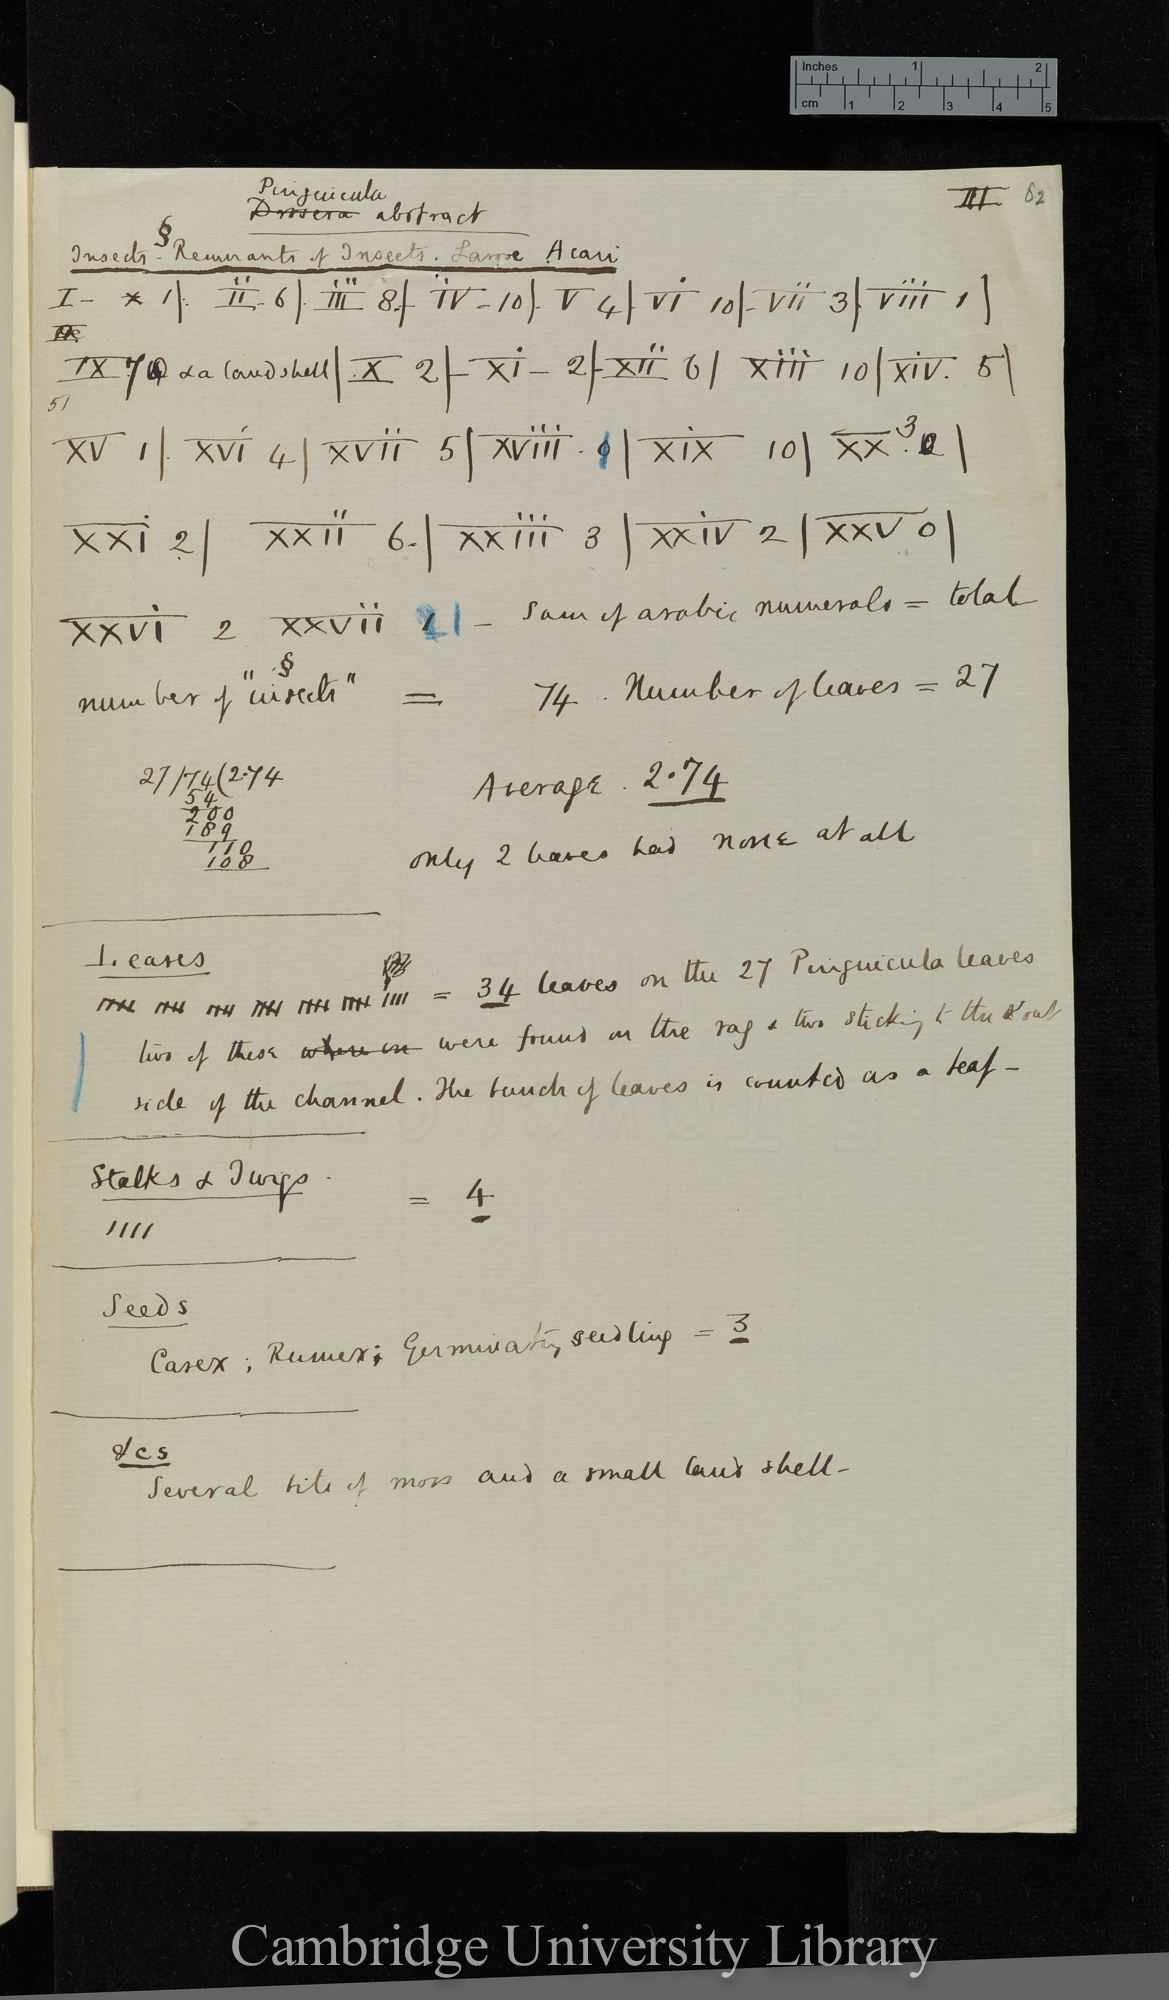 Inches 1 2
cm 1 2 3 4 5
Pinguicula
III 52
Drosera abstract
§
Insects - Remnants of Insects. Larvæ Acari
I - 1|. ii - 6|. iii 8.| - iv - 10|. V 4|. vi 10| - vii 3|. viii 1|
IX 7 & a land shell| X 2| - xi - 2| - xii 6| xiii 10| xiv. 5|
51
XV 1|. xvi 4| xvii 5| xviii . | xix 10| XX. 3|
XXI 2| XXII 6.| XXIII 3| XXIV 2| XXV 0|
XXVI 2 XXVII 1 - Sum of arabic numerals = total
§
number of "insects" = 74. Number of leaves = 27
27/74(2.74
54
200
189
110
108
Average. 2.74
only 2 leaves had none at all
Leaves
= 34 leaves on the 27 Pinguicula leaves
two of these where on were found on the rag & two sticking to the out
side of the channel. The bunch of leaves is counted as a leaf -
Stalks & Twigs.
//// = 4
Seeds
Carex; Rumex; Germinating seedling = 3
&cs
Several bits of moss and a small land shell -
Cambridge University Library